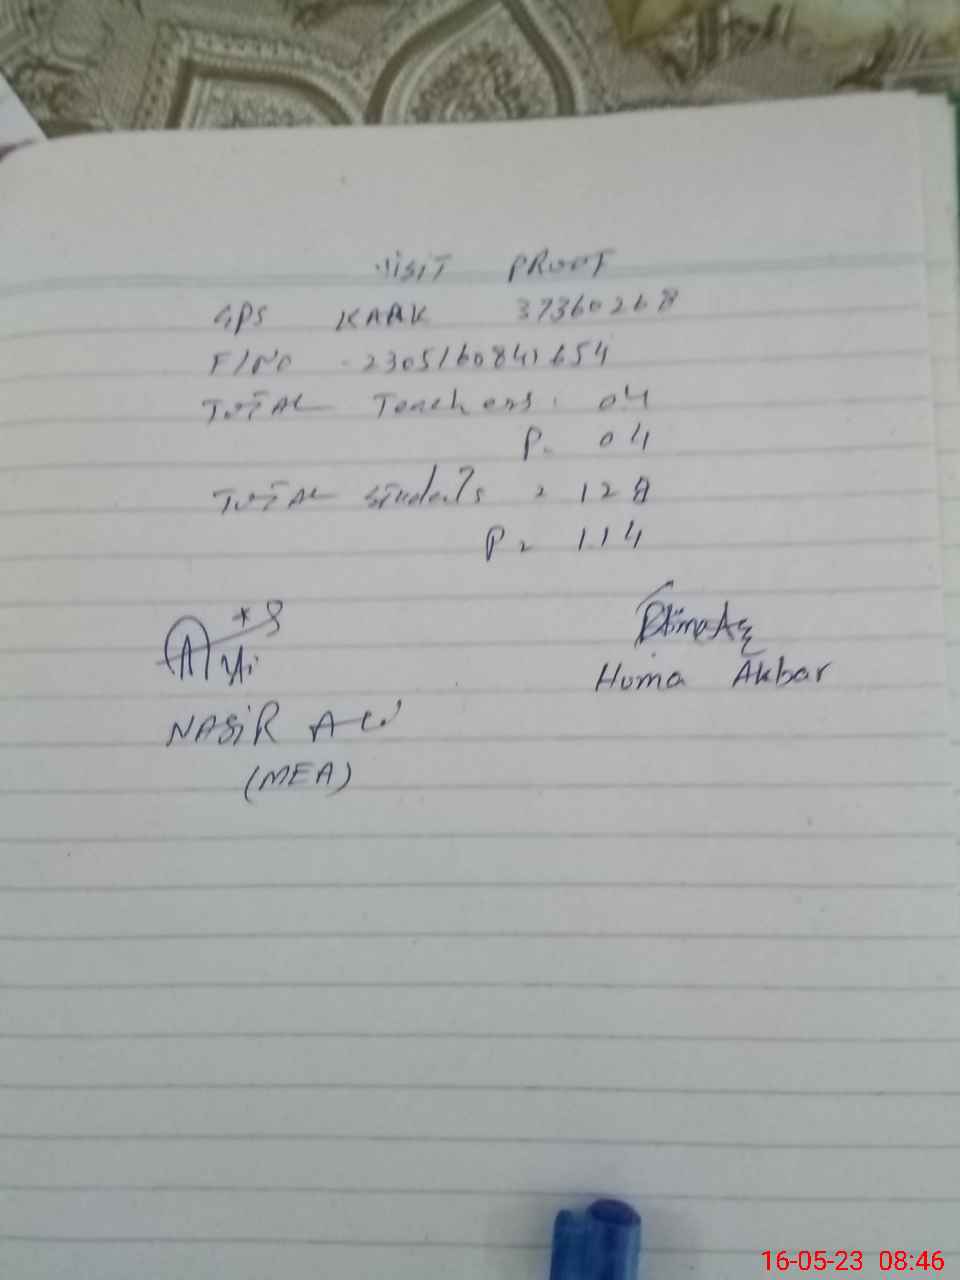 VISIT PROOF
GPS KAAK 37360268
F/NO - 230516084654
TOTAL Teachers . 04
P. 04
TOTAL Students = 128
P = 114
NASIR ALI
Huma Akbar
(MEA)
16-05-23 08:46